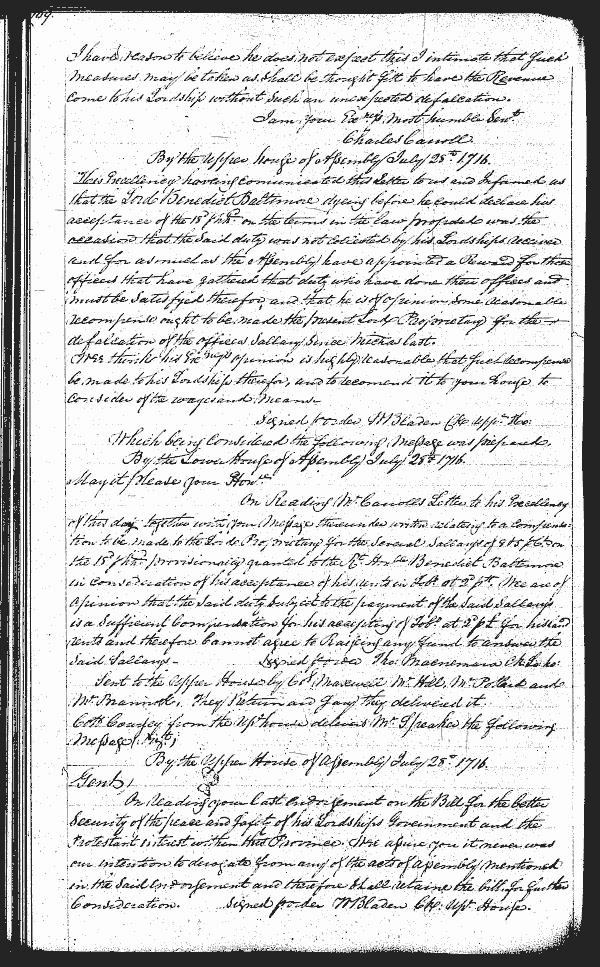 I have reason to believe he does not expect this I intimate that such
measures may be token as shall be thought fitt to have the Revenue
come to his Lordship without Such an unexpected defalcation.
I am your Exncys. most humble Servt.
Charles Carroll
By the Upper house of Assembly July 28th 1716.
His Excellency having comunicated this Letter to us and Informed us
that the Lord Benedict Baltemore dyeing before he could declare his
acceptance of the 18d p hhd. on the terms in the law proposed was the
occasion that the Said duty was not colected by his Lordships receiver
and for as much as the Assembly have appointed a Reward for those
officers that have gathered that duty who have done their offices and
must be Satisfyed therefor and that he is of opinion Some reasonable
recompense ought to be made the present Lord Proprietary for the
defalcation of the officers Sallary Since Michas last.
Wee think his Exncys opinion is highly reasonable that such recompense
be made to his Lordship therefor, and to recomend it to your house to
consider of the ways and Means
Signed p order W Bladen Clk. Uppr. Ho:
Which being Considered the following Message was prepared.
By the Lower House of Assembly July 28th 1716.
May it please your Honrs.
On Reading Mr. Carrolls Letter to his Excellency
of this day together with your Message thereunder written relating to a Compensa
tion to be made to the Lord Proprietary for the Several Sallarys of on
the 18d p hhd. provisionaly granted to the Rt. Honble Benedict Baltemore
in Consideration of his acceptance of his rents in Tobo. at 2d pd. Wee are of
Opinion that the Said duty Subject to the payment of the Said Sallarys
is a Sufficient Compensation for his accepting of Tobo. at 2d pd for his said
rents and therefore Cannot agree to Raising any fund to answer the
Said Sallarys- Signed p order Tho: Macnemara Clk Lo. ho:
Sent to the Upper House by Coll Maxwell Mr. Hill, Mr. Pollard and
Mr. Brannock, They Return and Say they delivered it.
Collo. Coursey from the Uppr house delivers Mr. Speaker the following
Message Vizt;
By the Upper House of Assembly July 28th 1716.
Gent,
On reading your Last endorsement on the Bill for the better
Security of the peace and Safety of his Lordships Government and the
Protestant intrest within this Province. Wee assure you it never was
our intention to derogate from any of the acts of Assembly mentioned
in the Said Endorsement and therefore Shall retaine the bill for further
Consideration. Signed p order W Bladen Clk: Uppr. House.